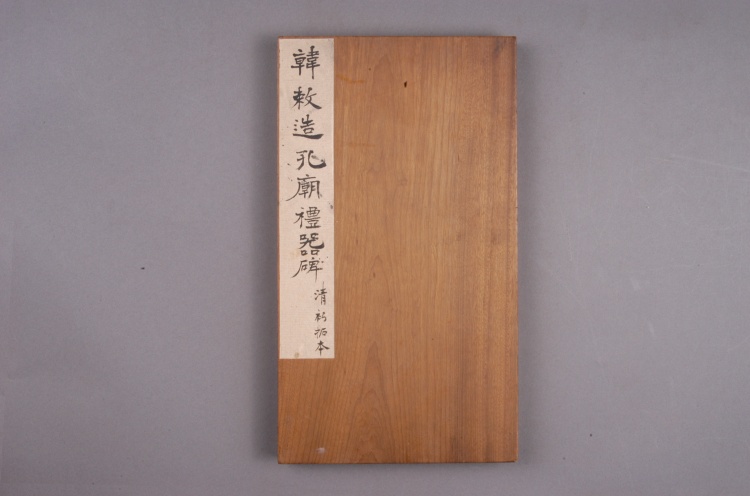 韓敕造孔廟禮器碑
清初拓本